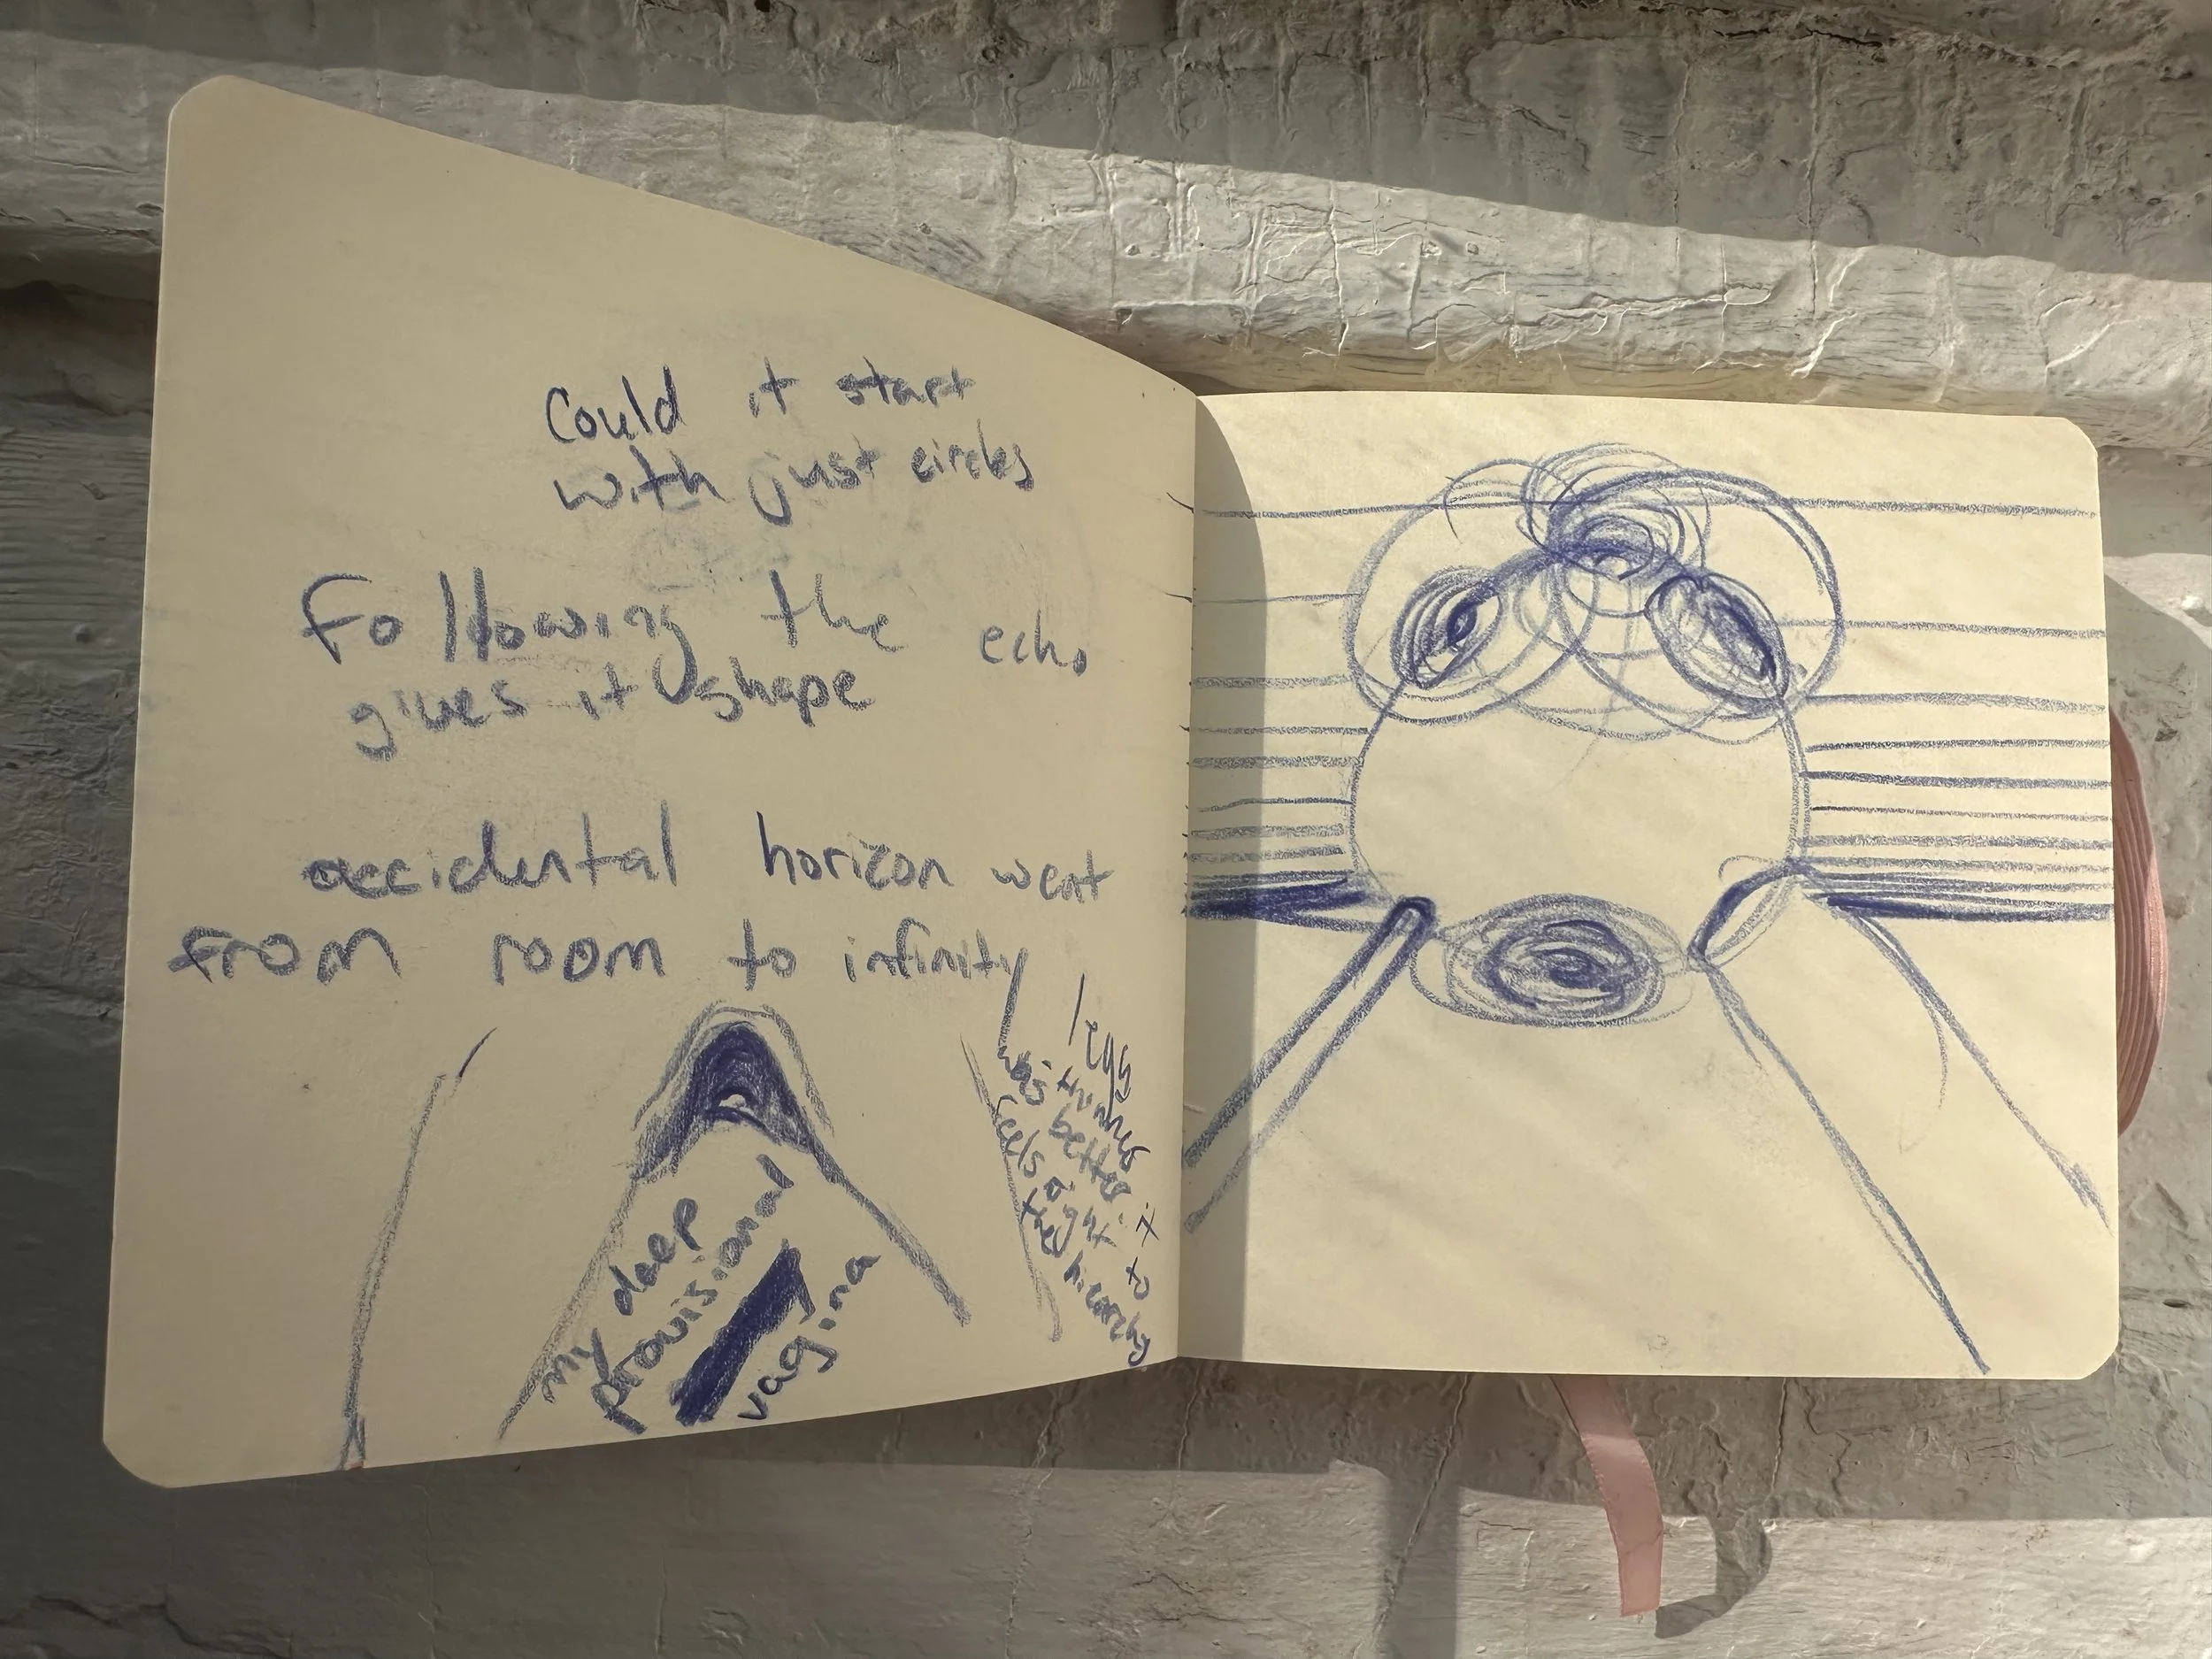 Could it start
with just circles
Following the echo
gives it shape
accidental horizon went
from room to infinity
my deep
provisional
vagina
legs
was thinner
better it
feels right to
the hierarchy